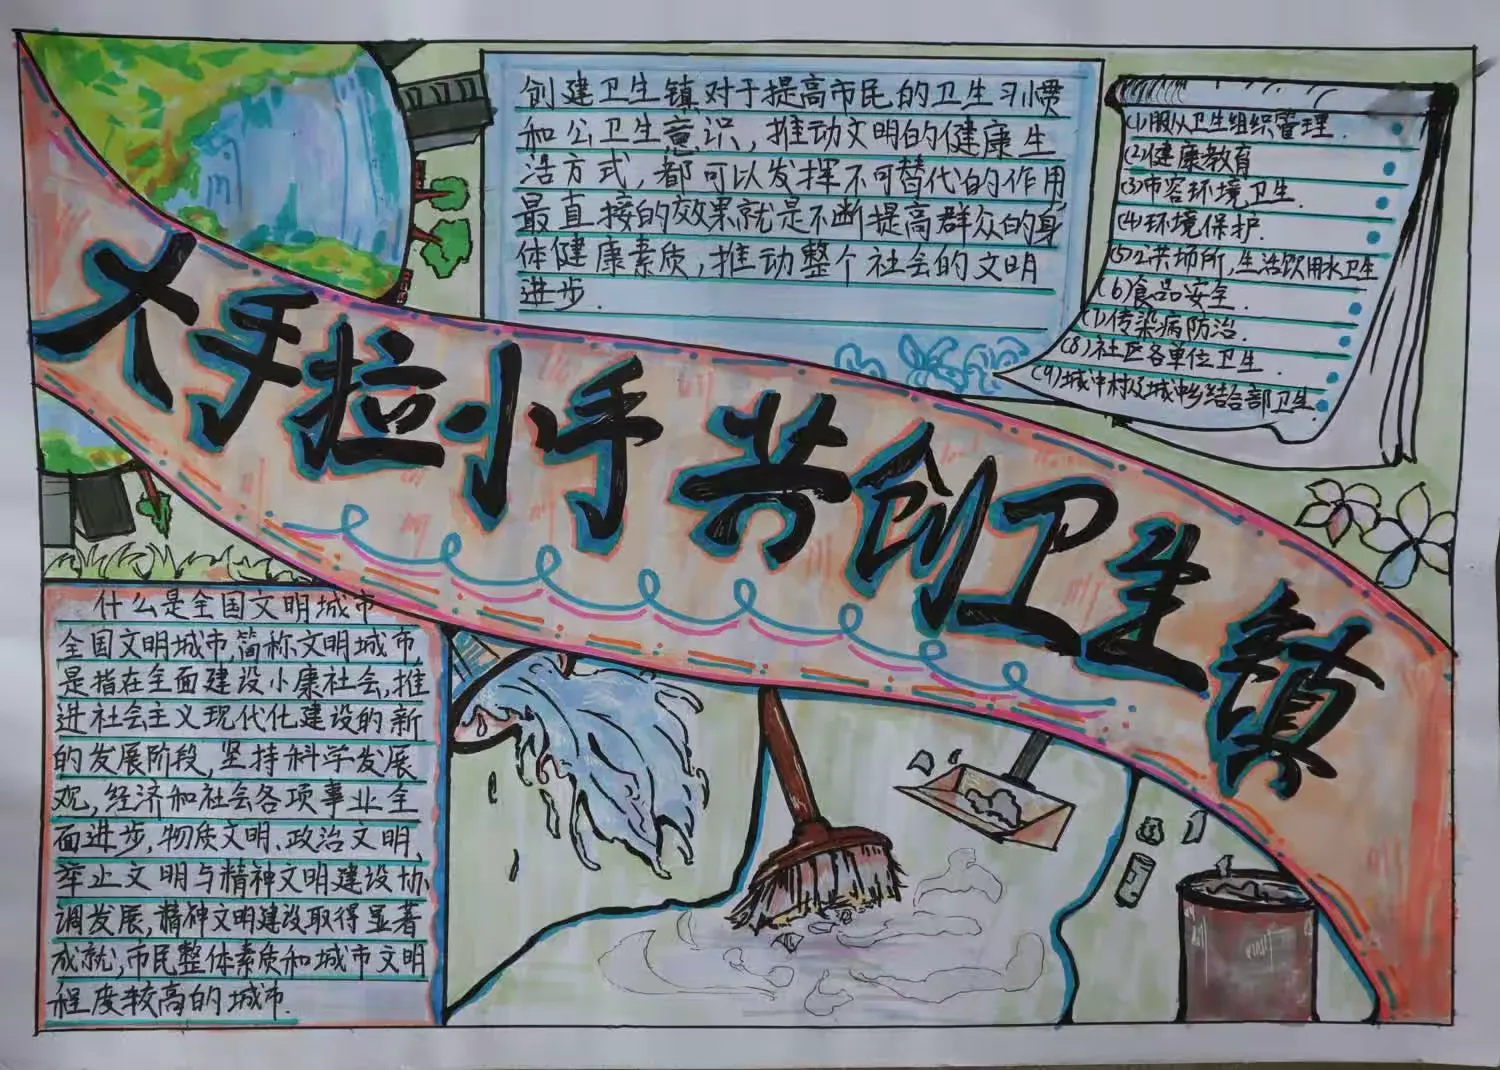 创建卫生镇对于提高市民的卫生习惯
和公卫生意识，推动文明的健康生
活方式，都可以发挥不可替代的作用
最直接的效果就是不断提高群众的身
体健康素质，推动整个社会的文明
进步.
(1)服从卫生组织管理.
(2)健康教育
(3)市容环境卫生.
(4)环境保护.
(5)公共场所，生活饮用水卫生
(6)食品安全.
(7)传染病防治.
(8)社区各单位卫生.
(9)城中村及城乡结合部卫生
大手拉小手共创卫生镇
什么是全国文明城市
全国文明城市,简称文明城市,
是指在全面建设小康社会,推
进社会主义现代化建设的新
的发展阶段,坚持科学发展
观,经济和社会各项事业全
面进步,物质文明、政治文明,
率止文明与精神文明建设协
调发展,精神文明建设取得显著
成就,市民整体素质和城市文明
程度较高的城市.